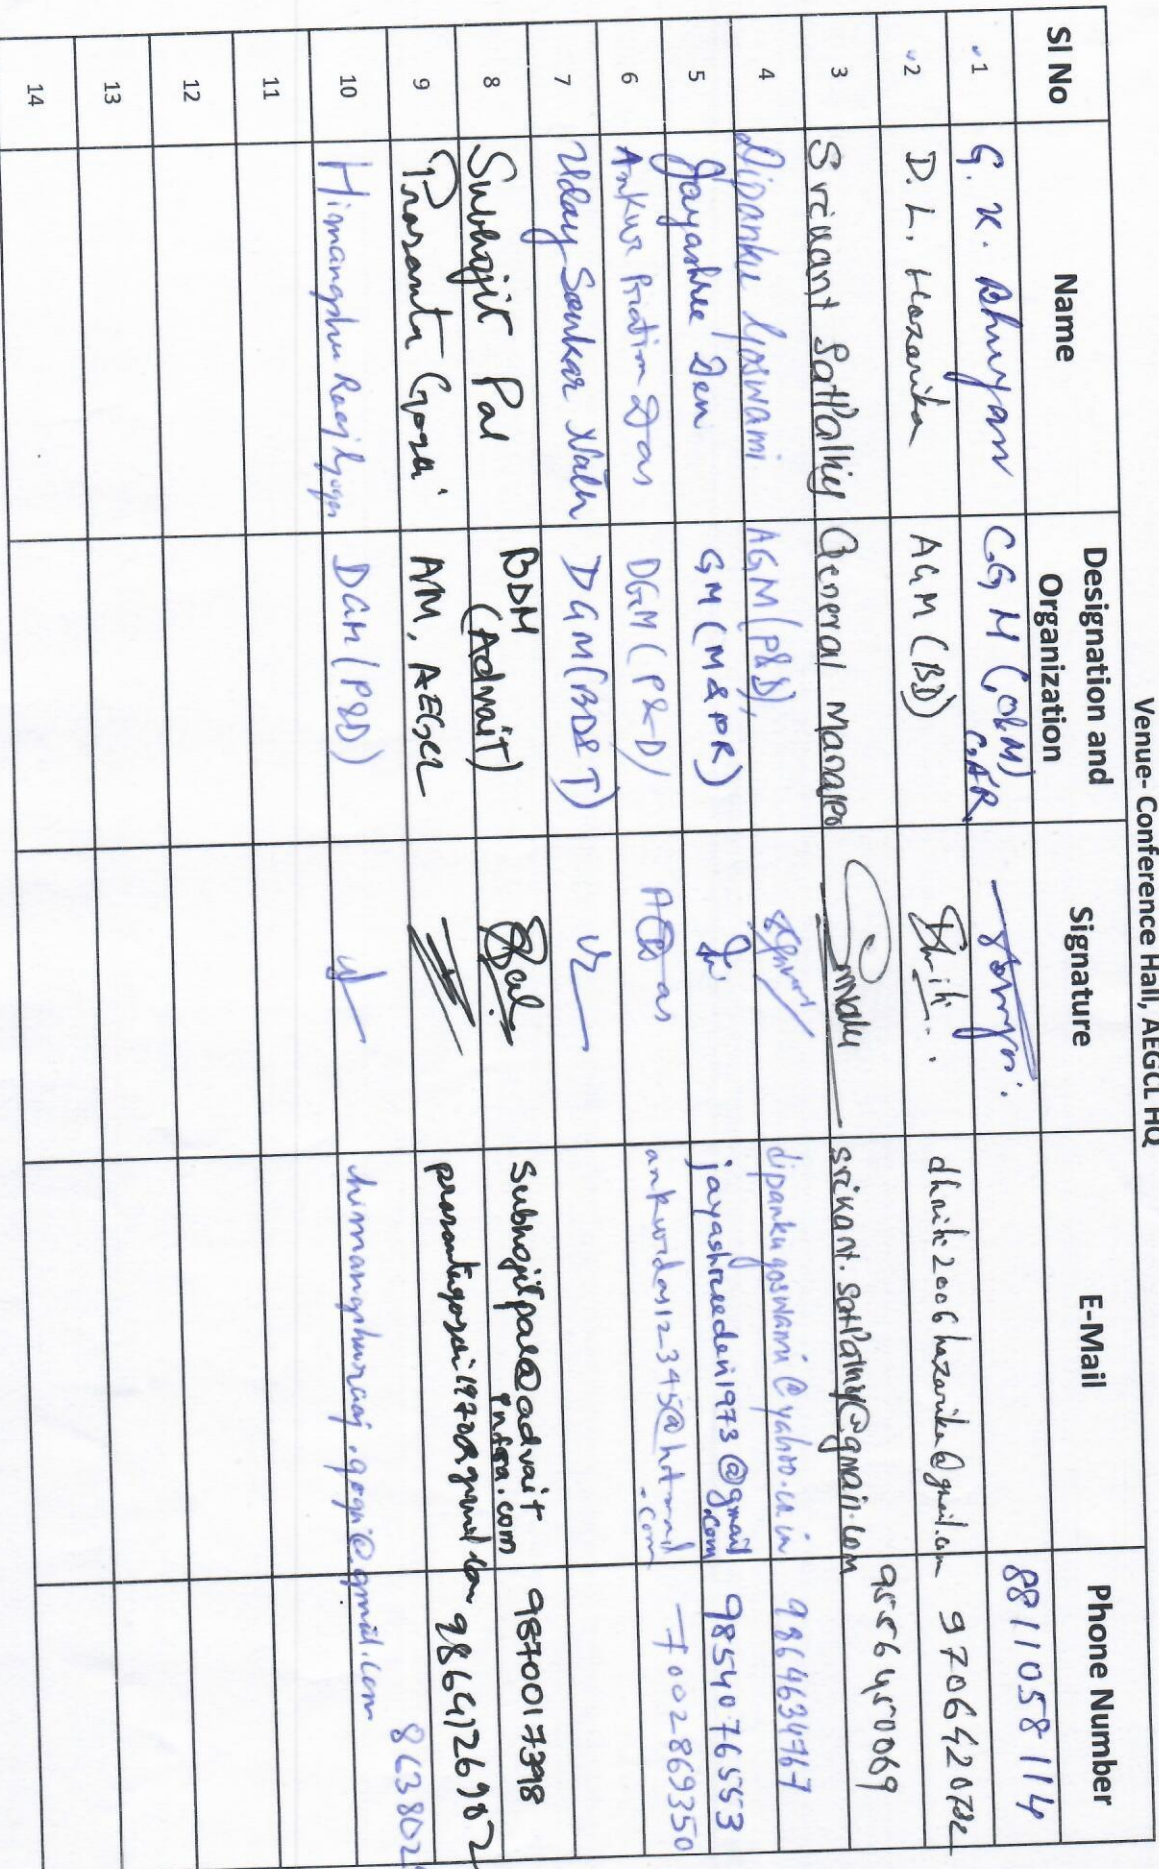 Venue- Conference Hall, AEGCL HQ
Sl No Name Designation and Organization Signature E-Mail Phone Number
1 G. K. Bhuyan CGM (O&M) CAR 8811058114
2 D. L. Hazarika AGM (BD) 9706420782
3 Srikant Satpathy General Manager srikant.satpathy@gmail.com 9556450069
4 Dipankar Goswami AGM (P&D), dipankugoswami@yahoo.co.in 9864634767
5 Jayashree Den GM (M&PR) jayashreeden1973@gmail.com 9854076553
6 Ankur Pratim Das DGM (P&D) ADas ankurdas12345@hotmail.com 7002869350
7 Uday Sankar Nath DGM (BD&T)
8 Subhojit Pal BDM (Advait) Pal subhojitpal@advaitinfra.com 9870017398
9 Prasanta Gosai AM, AEGCL prasantagosai1970@gmail.com 9864126902
10 Himangshu Raaj Gogoi DGM (P&D) himangshuraaj.gogoi@gmail.com 863802
11
12
13
14